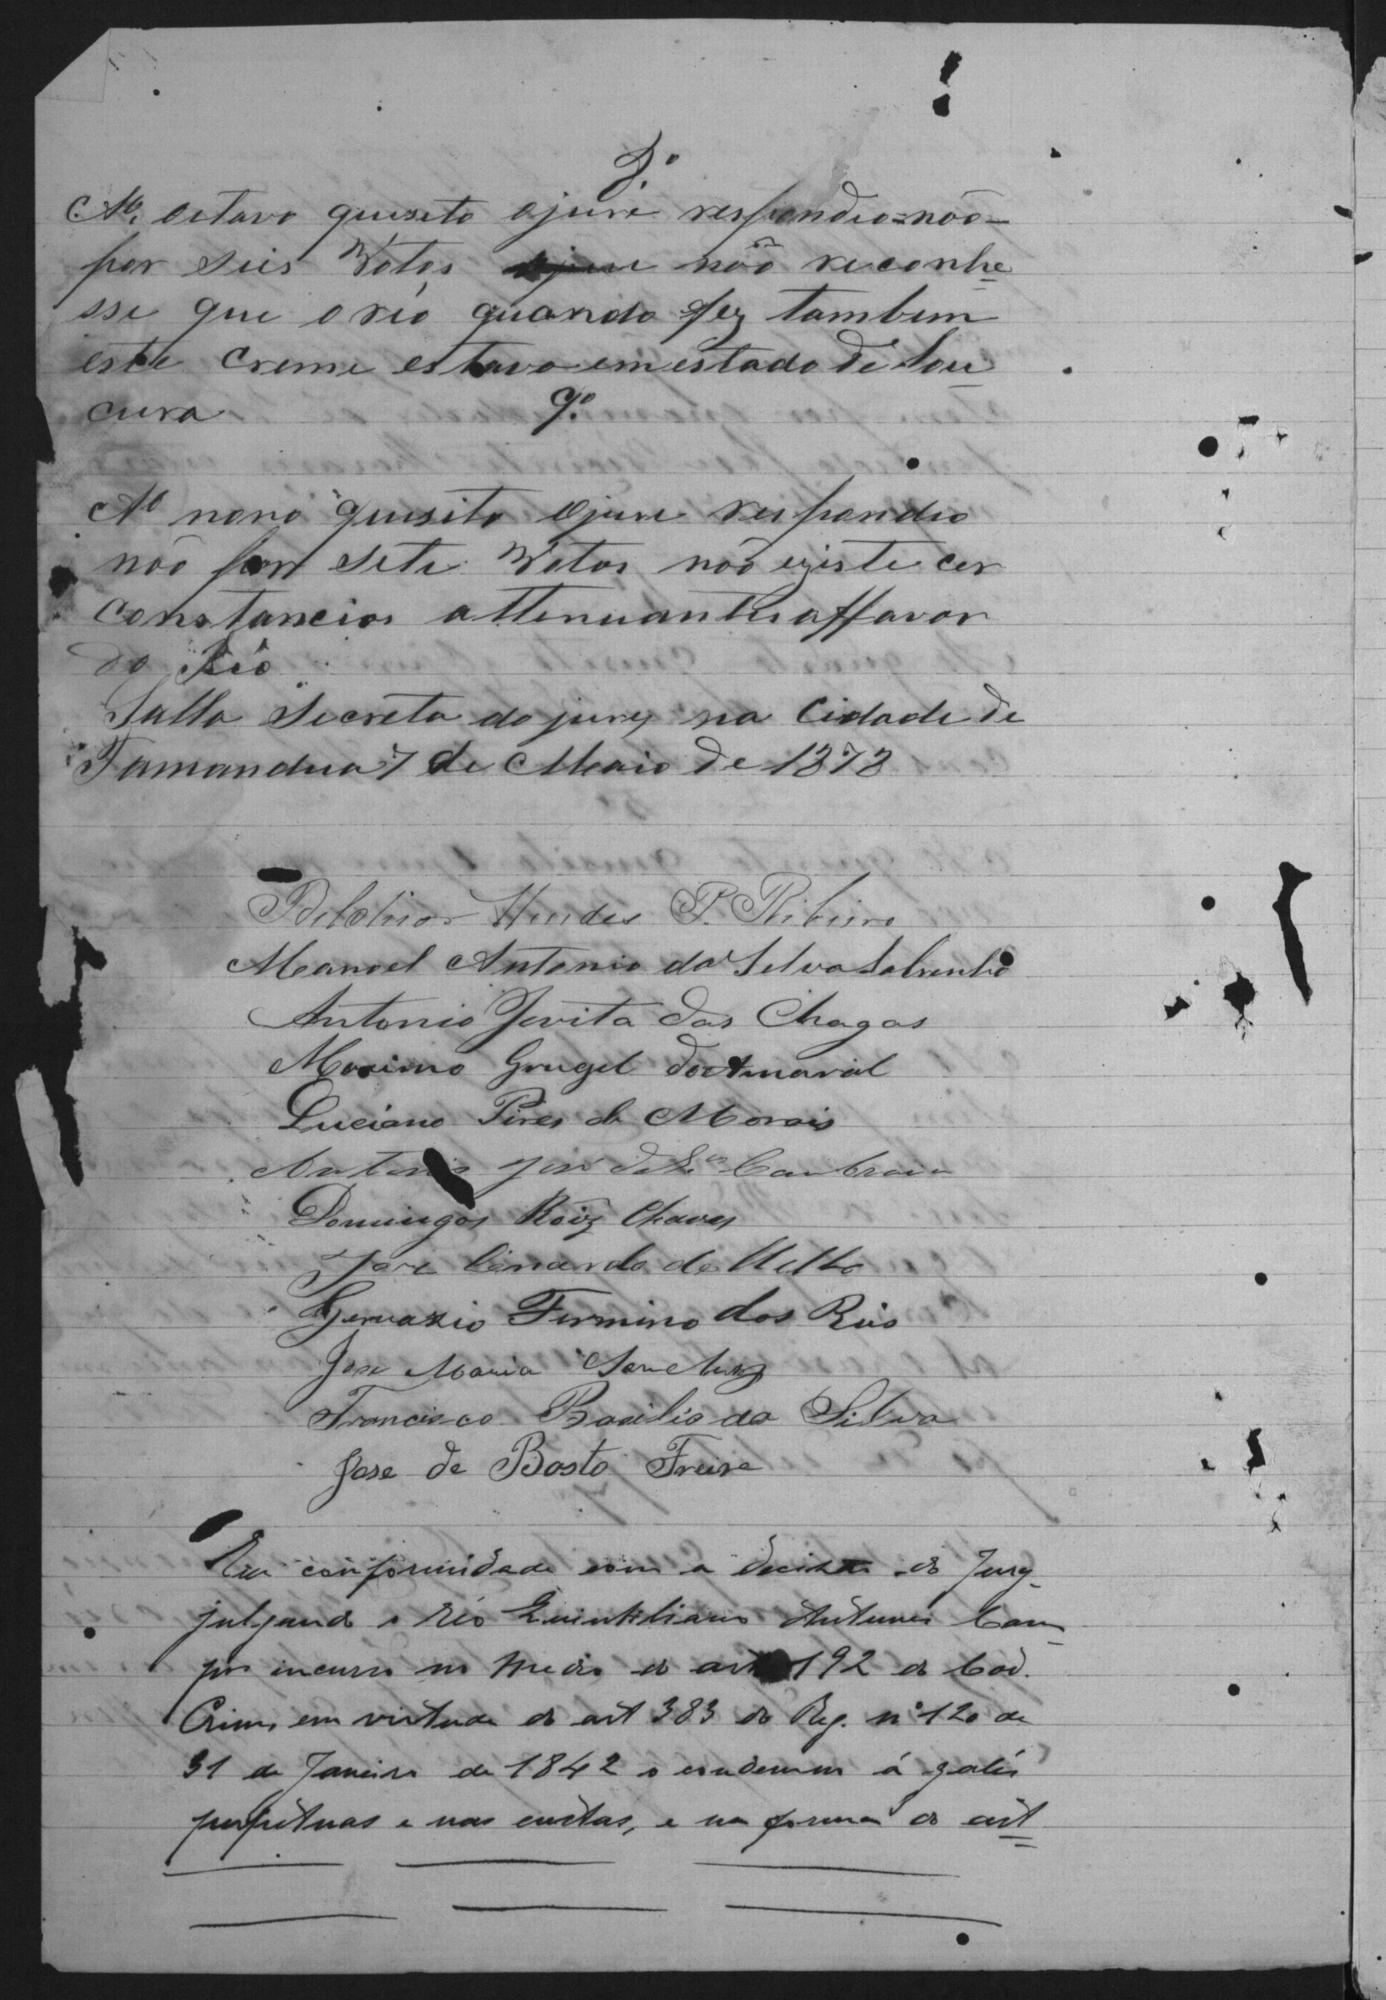 8º
Ao oitavo quesito ojure respondeo=não=
por seis Votos não reconhe=
sse que o reo quando fez tambem
este creme estava em estado de Lou=
cura
9º
Ao nono quesito ojure respondeo
não por sete Votos não existe cer
constancias attenuantes affavor
do Réo
Salla Secreta do jury na Cidade de
Tamandua 7 de Maio de 1873
Belchior Mendes P. Ribeiro
Manoel Antonio da Silva Sobrinho
Antonio Jovita das Chagas
Maximo Gurgel do Amaral
Luciano Pires de Morais
Antonio José de Cambraia
Domingos Roiz Chaves
José de Mello
Gervazio Firmino dos Reis
José Maria Sanches
Francisco Bazilio da Silva
José de Basto Freire
Em conformidade com a decisão do Jury
julgando o réo Quintiliano Antunes Cam=
pos incurso no medio do art 192 do Cod.
Crim, em virtude do art 383 do Reg. nº 120 de
31 de Janeiro de 1842 o condemno á galés
perpetuas e nas custas, e na forma do art